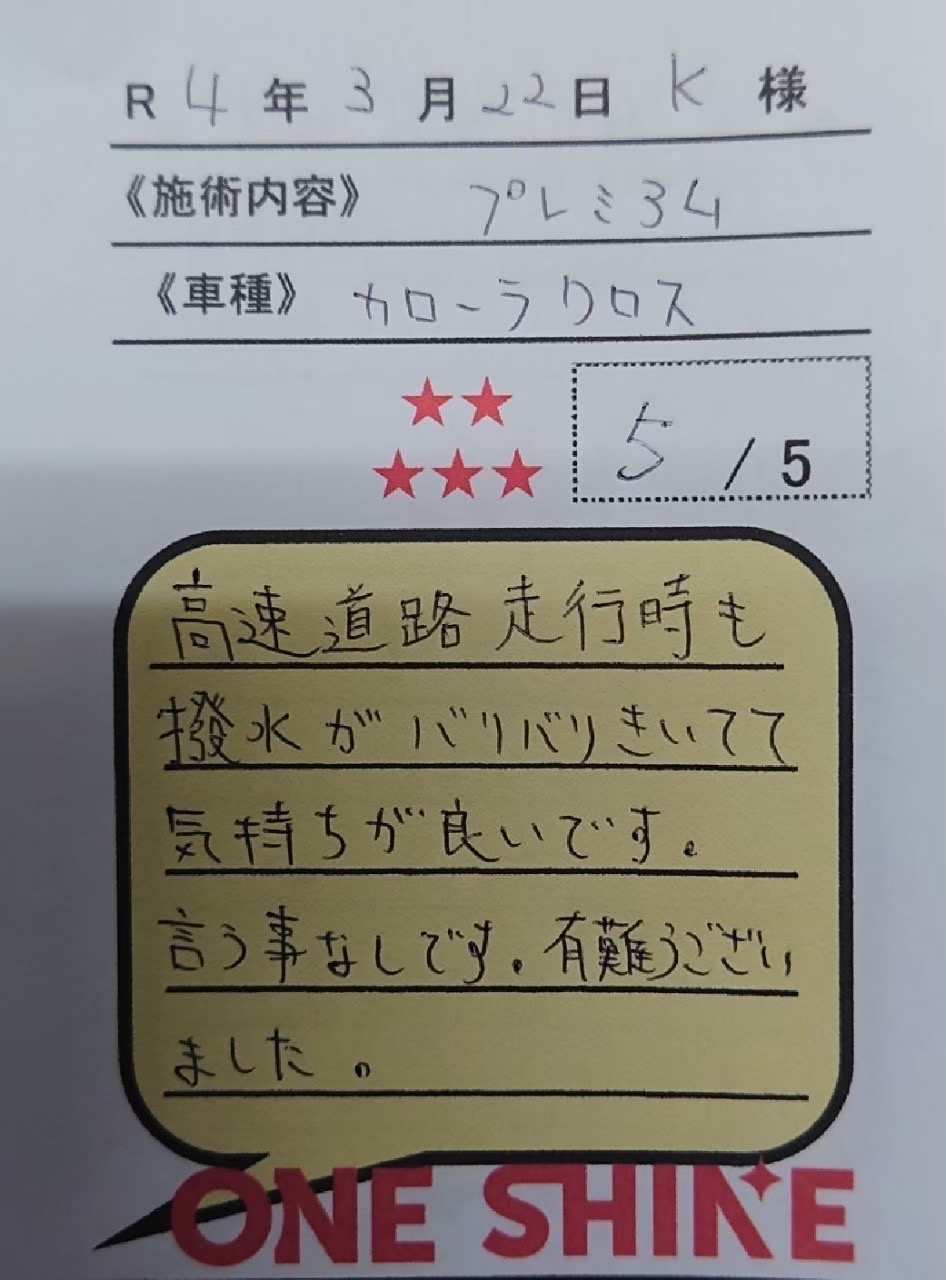 R 4 年 3 月 22 日 K 様
《施術内容》 プレミ34
《車種》 カローラクロス
★★
★★★ 5 / 5
高速道路走行時も
撥水がバリバリきいてて
気持ちが良いです。
言う事なしです。有難うござい
ました。
ONE SHINE